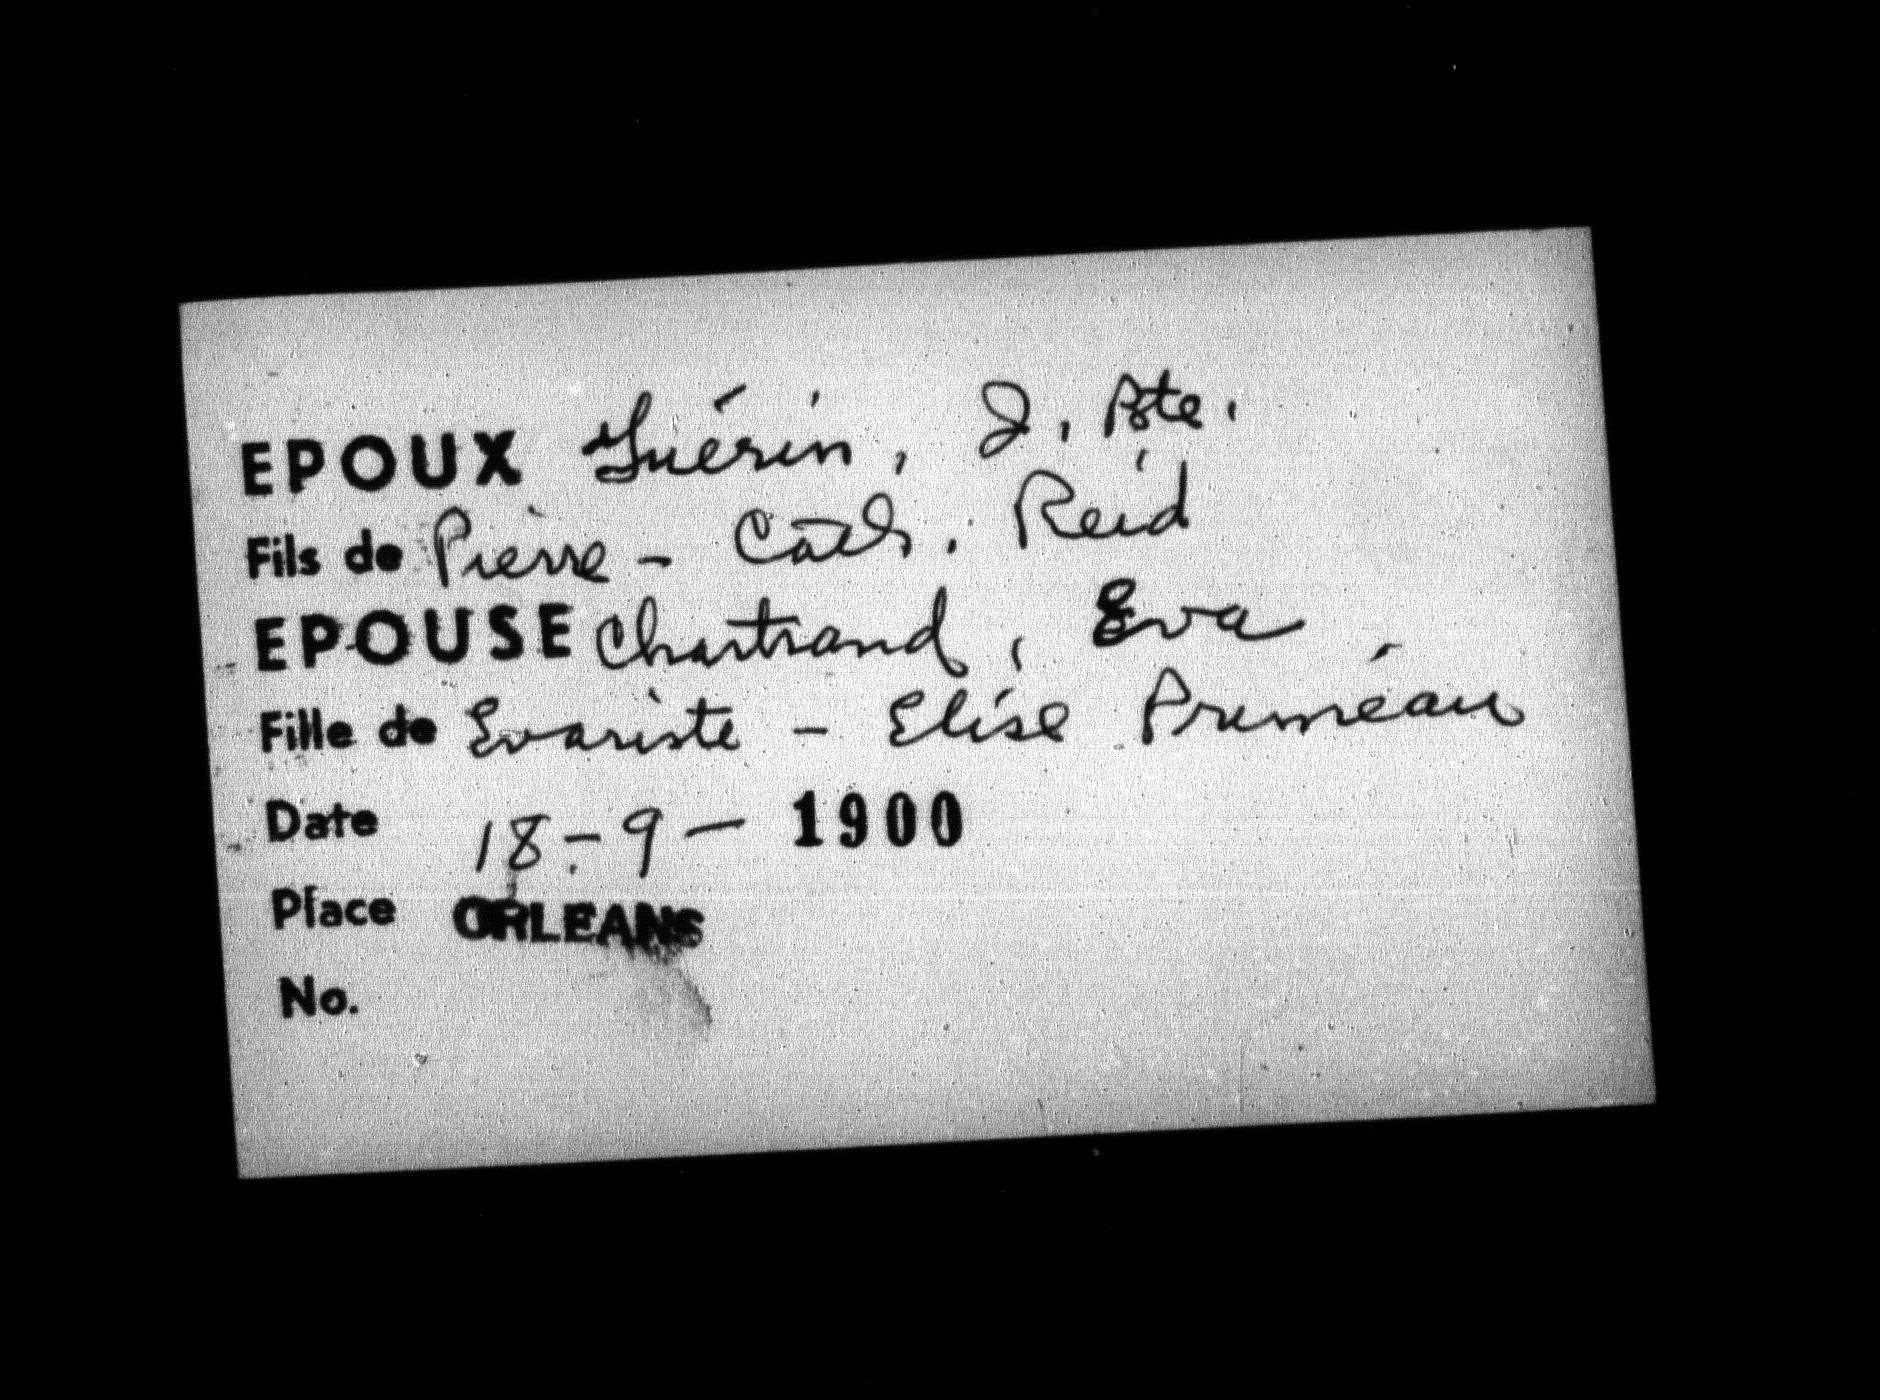 EPOUX Guérin, J. Bte.
Fils de Pierre - Cath. Reid
EPOUSE Chartrand, Eva
Fille de Evariste - Elise Priméau
Date 18-9-1900
Place ORLEANS
No.